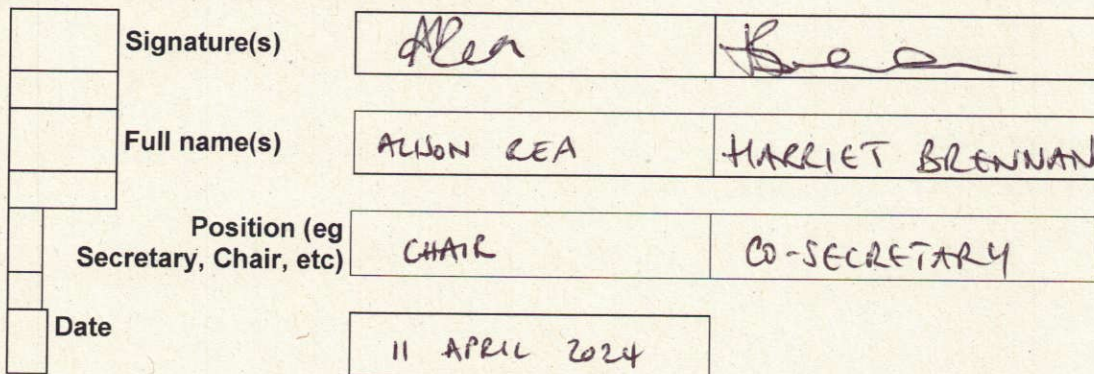 Signature(s)
Full name(s) ALISON REA HARRIET BRENNAN
Position (eg
Secretary, Chair, etc) CHAIR CO-SECRETARY
Date 11 APRIL 2024